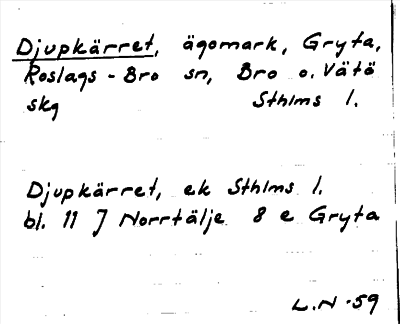 Djupkärret, ägomark, Gryta,
Roslags-Bro sn, Bro o. Vätö
skg Sthlms l.
Djupkärret, ek Sthlms l.
bl. 11 J Norrtälje 8 e Gryta
L.N -59